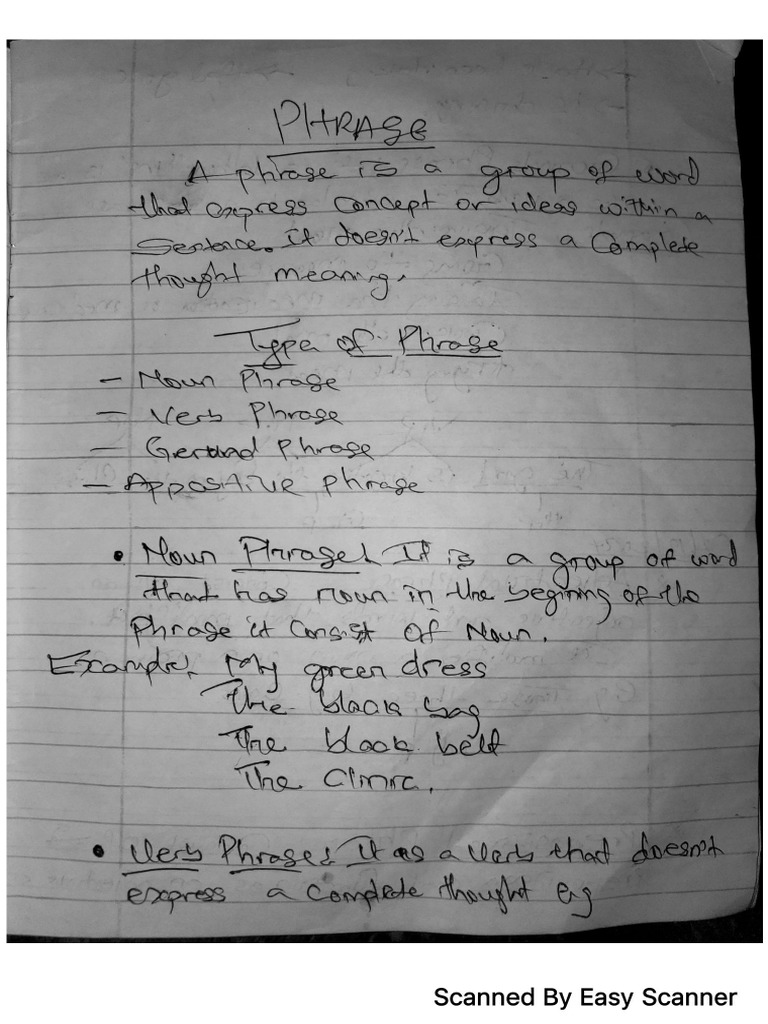 PHRASE
A phrase is a group of word
that express concept or ideas within a
Sentence. It doesn't express a Complete
thought meaning.
Type of Phrase
- Noun Phrase
- Verb Phrase
- Gerund Phrase
- Appositive phrase
• Noun Phrase: It is a group of word
that has noun in the begining of the
Phrase it consist of Noun.
Example, My green dress
The black bag
The black belt
The Clinic.
• Verb Phrase: It is a verb that doesn't
express a complete thought eg
Scanned By Easy Scanner